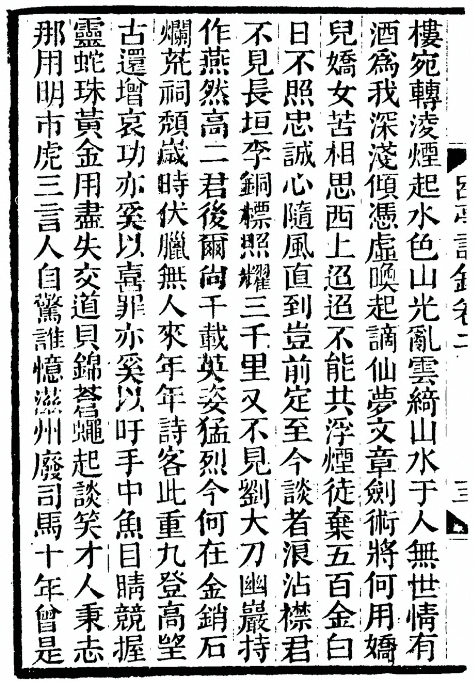 西亭詩鈔卷二
三
樓宛轉淩煙起水色山光亂雲綺山水于人無世情有
酒為我深淺傾憑虛喚起謫仙夢文章劍術將何用嬌
兒嬌女苦相思西上迢迢不能共浮煙徒棄五百金白
日不照忠誠心隨風直到豈前定至今談者浪沾襟君
不見長垣李銅標照耀三千里又不見劉大刀幽巖持
作燕然高二君後爾尙千載英姿猛烈今何在金銷石
爛荒祠頽歲時伏臘無人來年年詩客此重九登高望
古還增哀功亦奚以喜罪亦奚以吁手中魚目睛競握
靈蛇珠黃金用盡失交道貝錦蒼蠅起談笑才人秉志
那用明市虎三言人自驚誰憶滋州廢司馬十年曾是